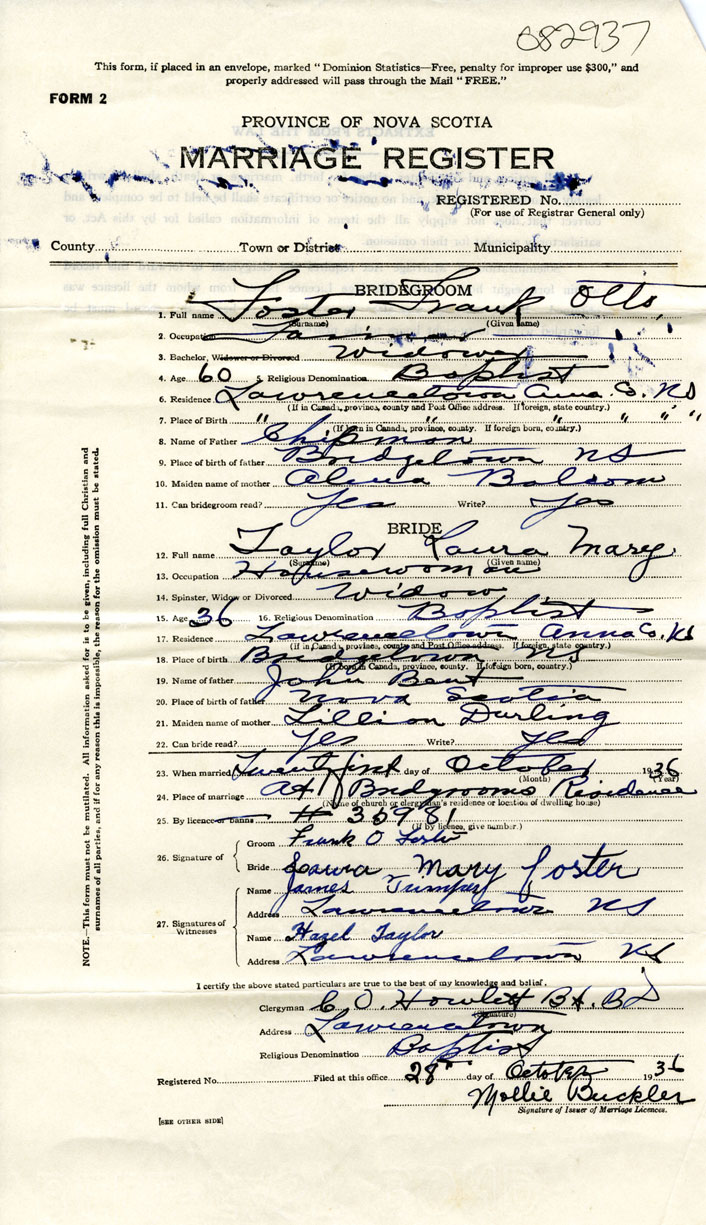 082937
This form, if placed in an envelope, marked "Dominion Statistics—Free, penalty for improper use $300," and
properly addressed will pass through the Mail "FREE."
FORM 2
PROVINCE OF NOVA SCOTIA
MARRIAGE REGISTER
REGISTERED No.
(For use of Registrar General only)
County Town or District Municipality
BRIDEGROOM
1. Full name Foster Frank Otto
(Surname) (Given name)
2. Occupation Farmer
3. Bachelor, Widower or Divorced Widower
4. Age 60 5. Religious Denomination Baptist
6. Residence Lawrencetown Anna. Co. NS
(If in Canada, province, county and Post Office address. If foreign, state country.)
7. Place of Birth " " " " "
(If born in Canada, province, county. If foreign born, country.)
8. Name of Father Chipman
9. Place of birth of father Bridgetown NS
10. Maiden name of mother Balsom
11. Can bridegroom read? Yes Write? Yes
BRIDE
12. Full name Taylor Laura Mary
(Surname) (Given name)
13. Occupation Housewoman
14. Spinster, Widow or Divorced Widow
15. Age 36 16. Religious Denomination Baptist
17. Residence Lawrencetown Anna Co. NS
(If in Canada, province, county and Post Office address. If foreign, state country.)
18. Place of birth Bridgetown NS
(If born in Canada, province, county. If foreign born, country.)
19. Name of father John Bent
20. Place of birth of father Nova Scotia
21. Maiden name of mother Lillian Durling
22. Can bride read? Yes Write? Yes
23. When married Twenty first day of October 1936
(Month) (Year)
24. Place of marriage At Bridgrooms Residence
(Name of church or clergyman's residence or location of dwelling house)
25. By licence or banns # 35981
(If by licence, give number.)
26. Signature of
Groom Frank O Foster
Bride Laura Mary Foster
27. Signatures of Witnesses
Name James Trimper
Address Lawrencetown NS
Name Hazel Taylor
Address Lawrencetown NS
I certify the above stated particulars are true to the best of my knowledge and belief.
Clergyman C. O. Howlett BA. BD
(Signature)
Address Lawrencetown
Religious Denomination Baptist
Registered No. Filed at this office 28th day of October 1936
Mollie Buckler
Signature of Issuer of Marriage Licences.
[SEE OTHER SIDE]
NOTE.—This form must not be mutilated. All information asked for is to be given, including full Christian and
surnames of all parties, and if for any reason this is impossible, the reason for the omission must be stated.